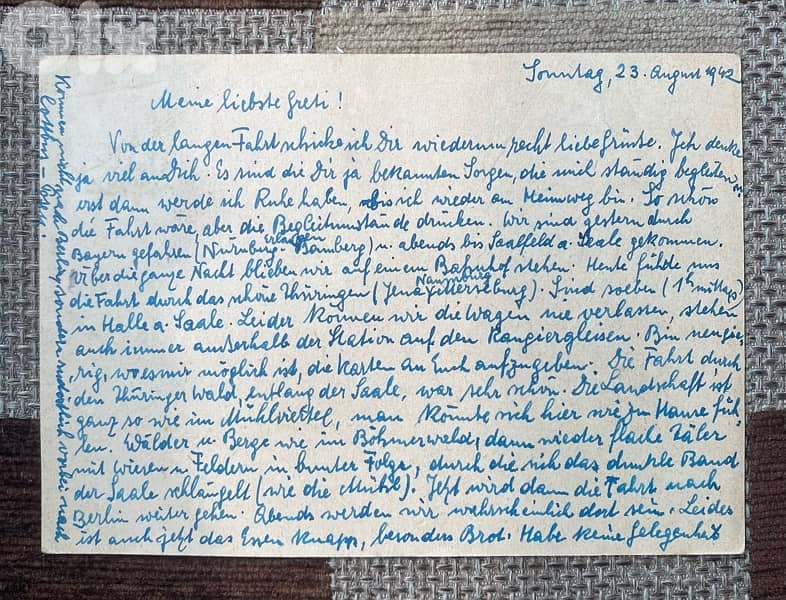 Sonntag, 23. August 1942
Meine liebste Greti!
Von der langen Fahrt schicke ich Dir wiederum recht liebe Grüsse. Ich denke
ja viel an Dich. Es sind die Dir ja bekannten Sorgen, die mich ständig begleiten u.
erst dann werde ich Ruhe haben, bis ich wieder am Heimweg bin. So schön
die Fahrt wäre, aber die Begleitumstände drücken. Wir sind gestern durch
Bayern gefahren (Nürnberg Erlangen Bamberg) u. abends bis Saalfeld a. Saale gekommen.
Über die ganze Nacht blieben wir auf einem Bahnhof stehen. Heute führte uns
die Fahrt durch das schöne Thüringen (Jena, Naumburg, Merseburg). Sind soeben (1h mittags)
in Halle a. Saale. Leider können wir die Wagen nie verlassen, stehen
auch immer ausserhalb der Station auf den Rangiergleisen. Bin neugie-
rig, wo es mir möglich ist, die Karten an Euch aufzugeben. Die Fahrt durch
den Thüringer Wald, entlang der Saale, war sehr schön. Die Landschaft ist
ganz so wie im Mühlviertel, man könnte sich hier wie zu Hause füh-
len. Wälder u. Berge wie im Böhmerwald, dann wieder flache Täler
mit Wiesen u. Feldern in bunter Folge, durch die sich das dunkle Band
der Saale schlängelt (wie die Mühl). Jetzt wird dann die Fahrt nach
Berlin weiter gehen. Abends werden wir wahrscheinlich dort sein. Leider
ist auch jetzt das Essen knapp, besonders Brot. Habe keine Gelegenheit
Kommen nicht nach Berlin, sondern südöstlich vorbei nach
Cottbus –